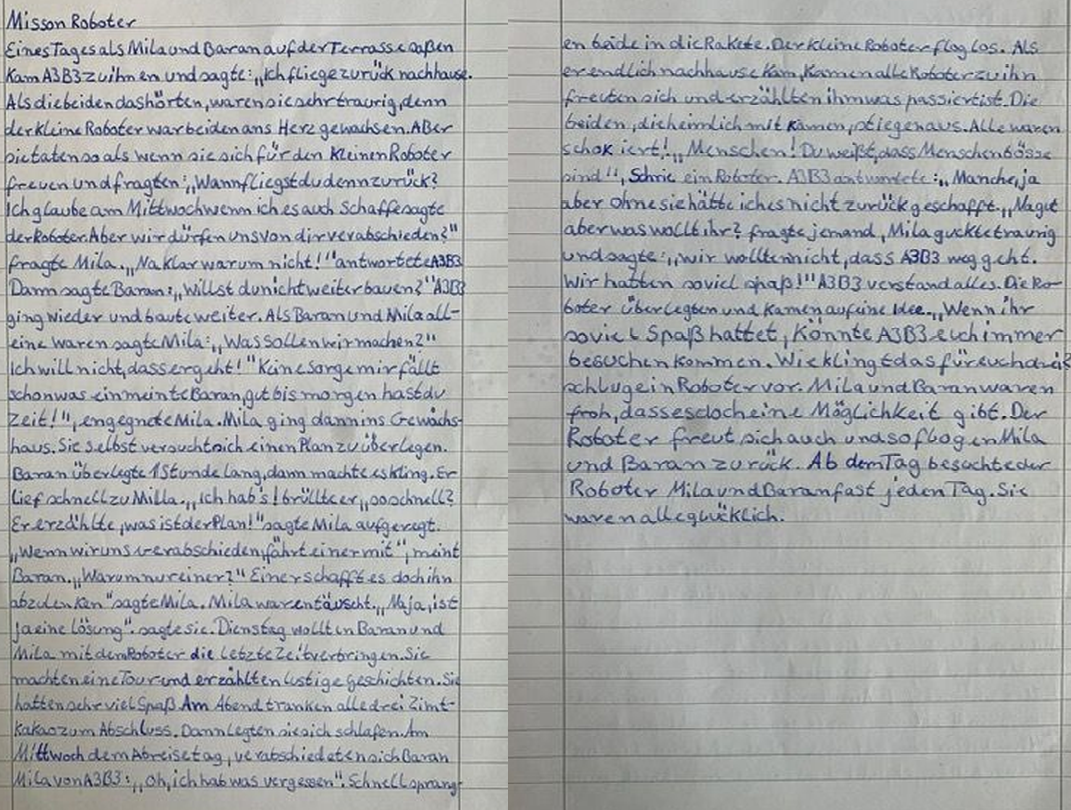 Misson Roboter
Eines Tages als Mila und Baran auf der Terrasse saßen
Kam A3B3 zu ihnen und sagte: „Ich fliege zurück nachhause.
Als die beiden das hörten, waren sie sehr traurig, denn
der kleine Roboter war beiden ans Herz gewachsen. ABer
sie taten so als wenn sie sich für den kleinen Roboter
freuen und fragten: „Wann fliegst du denn zurück?
Ich glaube am Mittwoch wenn ich es auch Schaffe sagte
der Roboter. Aber wir dürfen uns von dir verabschieden?"
fragte Mila. „Na klar warum nicht!" antwortete A3B3
Dann sagte Baran: „Willst du nicht weiter bauen?" A3B3
ging wieder und baute weiter. Als Baran und Mila all-
eine waren sagte Mila: „Was sollen wir machen?"
Ich will nicht, dass er geht!" Keine sorge mir fällt
schon was ein meinte Baran, gut bis morgen hast du
Zeit!", engegnete Mila. Mila ging dann ins Gewächs-
haus. Sie Selbst versucht sich einen Plan zu überlegen.
Baran überlegte 1 Stunde lang, dann machte es kling. Er
lief schnell zu Milla. „Ich hab's! brüllte er, „so schnell?
Er erzählte, was ist der Plan!" sagte Mila aufgeregt.
„Wenn wir uns verabschieden, fährt einer mit", meint
Baran. „Warum nur einer?" Einer schafft es doch ihn
abzulenken" sagte Mila. Mila war entäuscht. „Naja, ist
ja eine lösung". sagte sie. Dienstag wollten Baran und
Mila mit dem Roboter die letzte Zeit verbringen. Sie
machten eine Tour und erzählten lustige geschichten. Sie
hatten sehr viel Spaß. Am Abend tranken alle drei Zimt-
kakao zum Abschluss. Dann legten sie sich schlafen. Am
Mittwoch dem Abreisetag, verabschiedeten sich Baran
Mila von A3B3: „Oh, ich hab was vergessen". Schnell sprang-
en beide in die Rakete. Der kleine Roboter flog los. Als
er endlich nachhause kam, kamen alle Roboter zu ihn
freuten sich und erzählten ihm was passiert ist. Die
beiden, die heimlich mit kamen, stiegen aus. Alle waren
schokiert! „Menschen! Du weißt, dass Menschen bösse
sind", Schrie ein Roboter. A3B3 antwortete: „Manche, ja
aber ohne sie hätte ich es nicht zurück geschafft. „Na gut
aber was wollt ihr? fragte jemand, Mila guckte traurig
und sagte: „wir wollten nicht, dass A3B3 weg geht.
Wir hatten soviel spaß!" A3B3 verstand alles. Die Ro-
boter überlegten und kamen auf eine Idee. „Wenn ihr
soviel Spaß hattet, könnte A3B3 euch immer
besuchen kommen. Wie klingt das für euch
schlug ein Roboter vor. Mila und Baran waren
froh, dass es doch eine Möglichkeit gibt. Der
Roboter freut sich auch und so flogen Mila
und Baran zurück. Ab dem Tag besuchte der
Roboter Mila und Baran fast jeden Tag. Sie
waren alle glücklich.